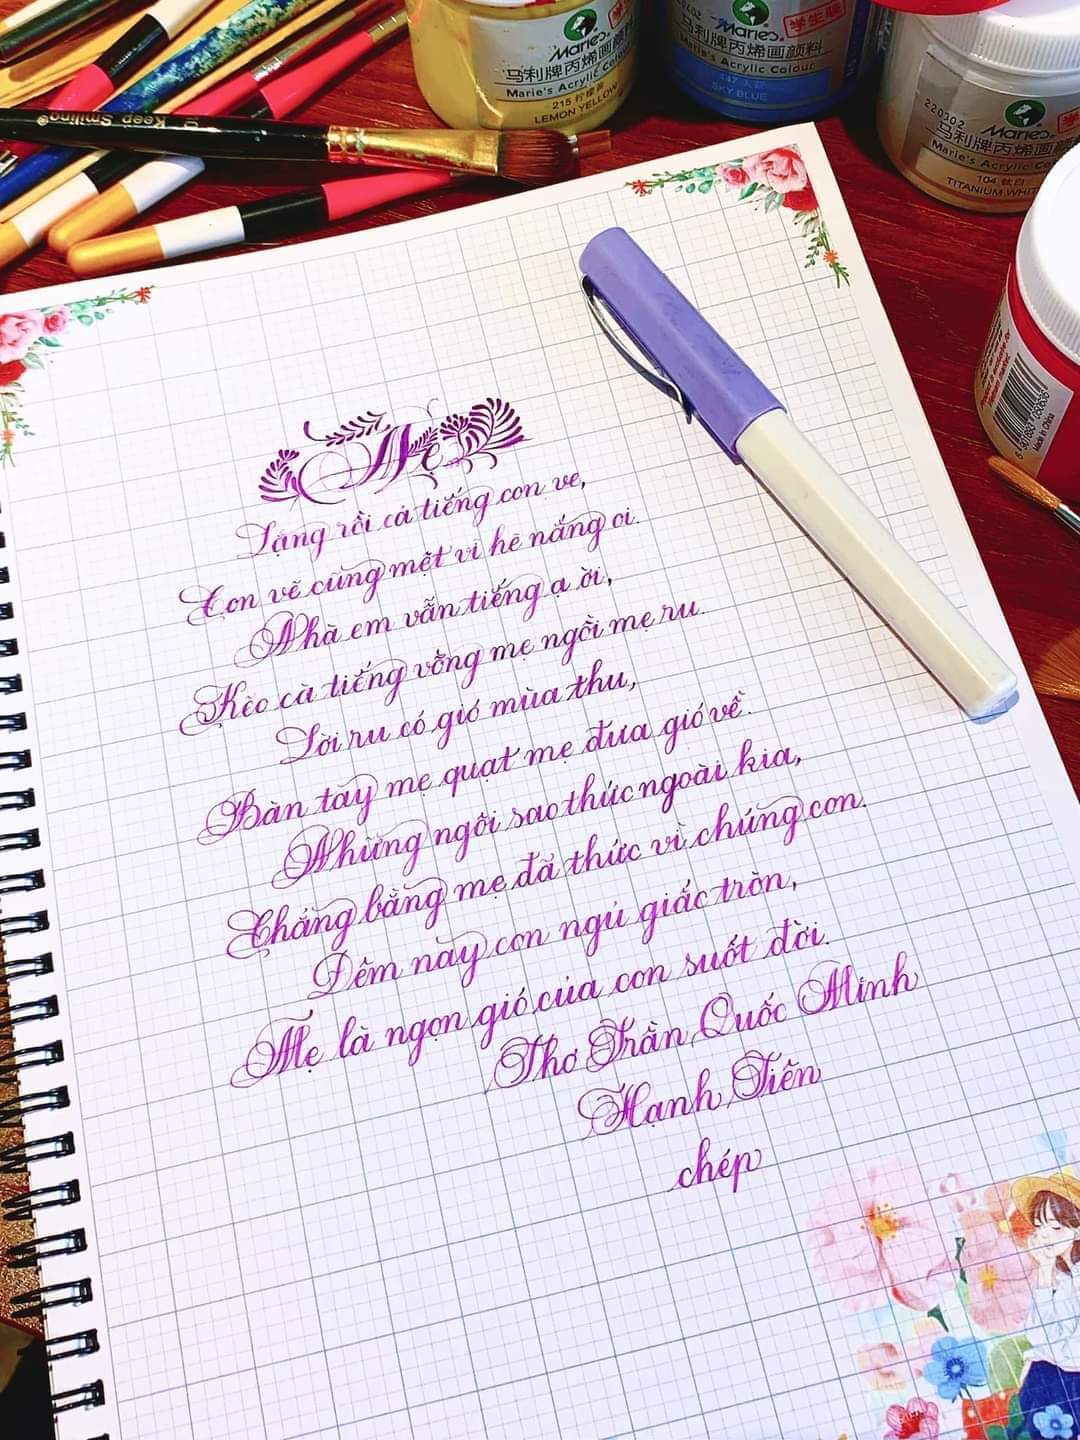 Keep Smiling®
Maries
学生
马利牌丙烯画颜料
Marie's Acrylic Colour
215 柠檬黄
LEMON YELLOW
Maries
学生
马利牌丙烯画颜料
Marie's Acrylic Colour
SKY BLUE
220302
Maries
马利牌丙烯画颜料
Marie's Acrylic
104 钛白
TITANIUM WHIT
Made in China
Mẹ
Lặng rồi cả tiếng con ve,
Con vẽ cũng mệt vì hè nắng oi.
Nhà em vẫn tiếng ạ ời,
Kẽo cà tiếng võng mẹ ngồi mẹ ru.
Lời ru có gió mùa thu,
Bàn tay mẹ quạt mẹ đưa gió về.
Những ngôi sao thức ngoài kia,
Chẳng bằng mẹ đã thức vì chúng con.
Đêm nay con ngủ giấc tròn,
Mẹ là ngọn gió của con suốt đời.
Thơ Trần Quốc Minh
Hạnh Tiên
chép